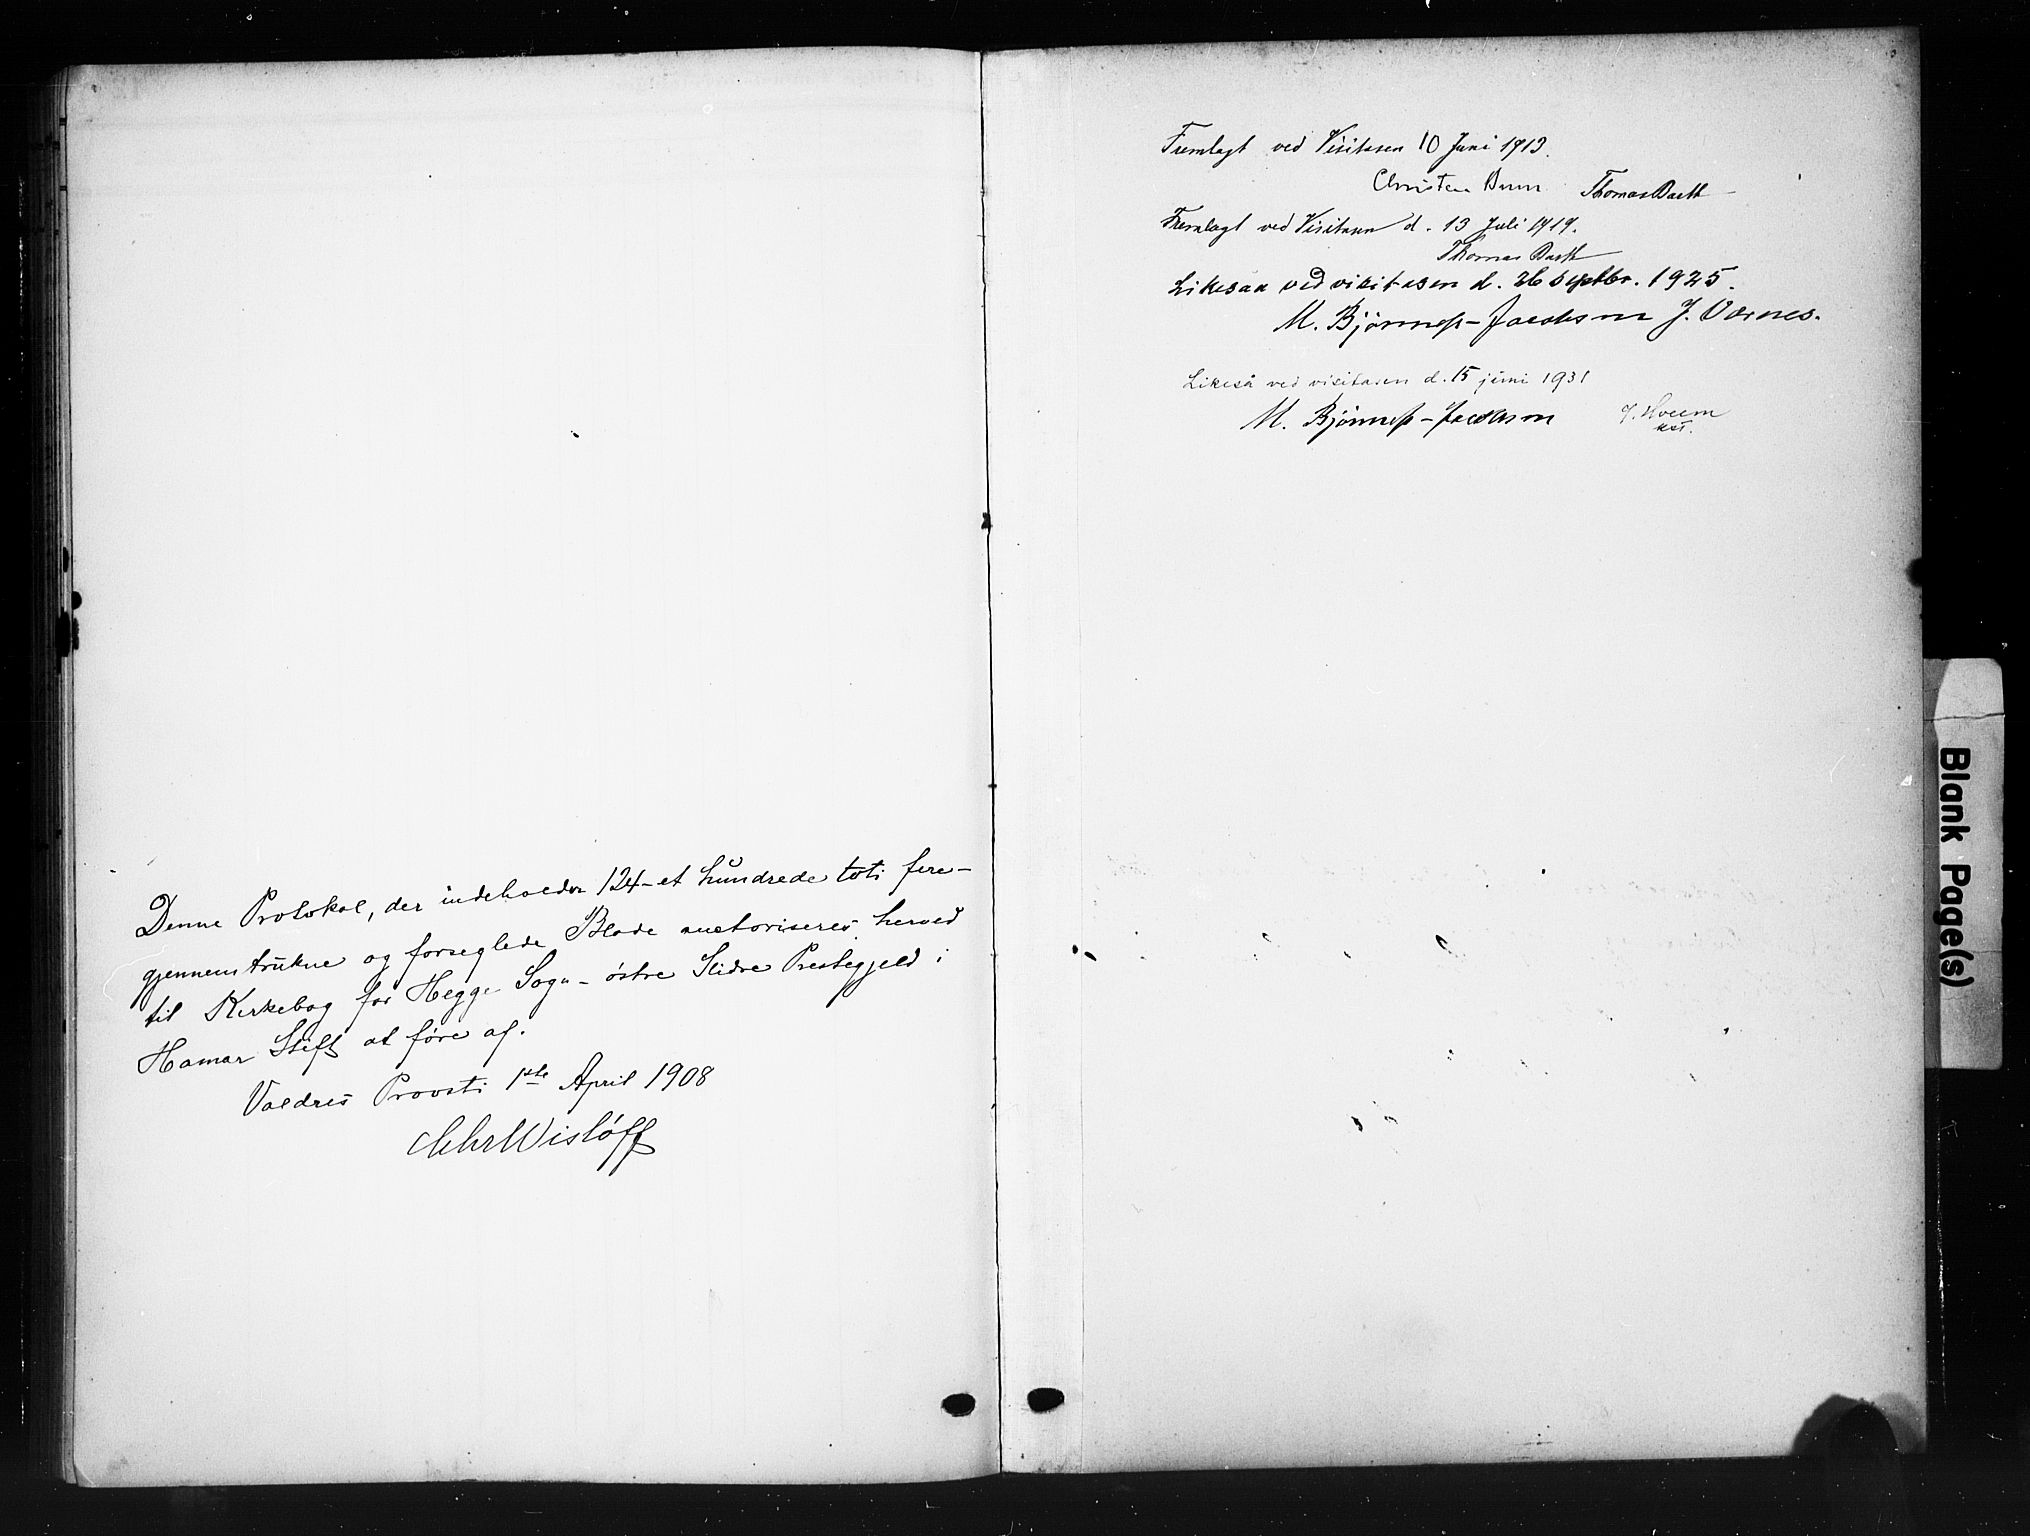 Denne Protokol, der indeholder 124 - et hundrede toti fire -
gjennemtrukne og forseglede Blade auctoriseres herved
til Kirkebog for Hegge Sogn - östre Slidre Prestegjeld i
Hamar Stift at føre af.
Valdres Provsti 1ste April 1908
Chr Wisløff
Fremlagt ved Visitasen 10 Juni 1913.
Christen Brun Thomas Barth
Fremlagt ved Visitasen d. 13 Juli 1919.
Thomas Barth
Likesaa ved visitasen d. 26 septbr. 1925.
M. Bjönness-Jacobsen J. Værnes.
Likeså ved visitasen d. 15 juni 1931
M. Bjönness-Jacobsen J. Hveem
kst.
Blank Page(s)